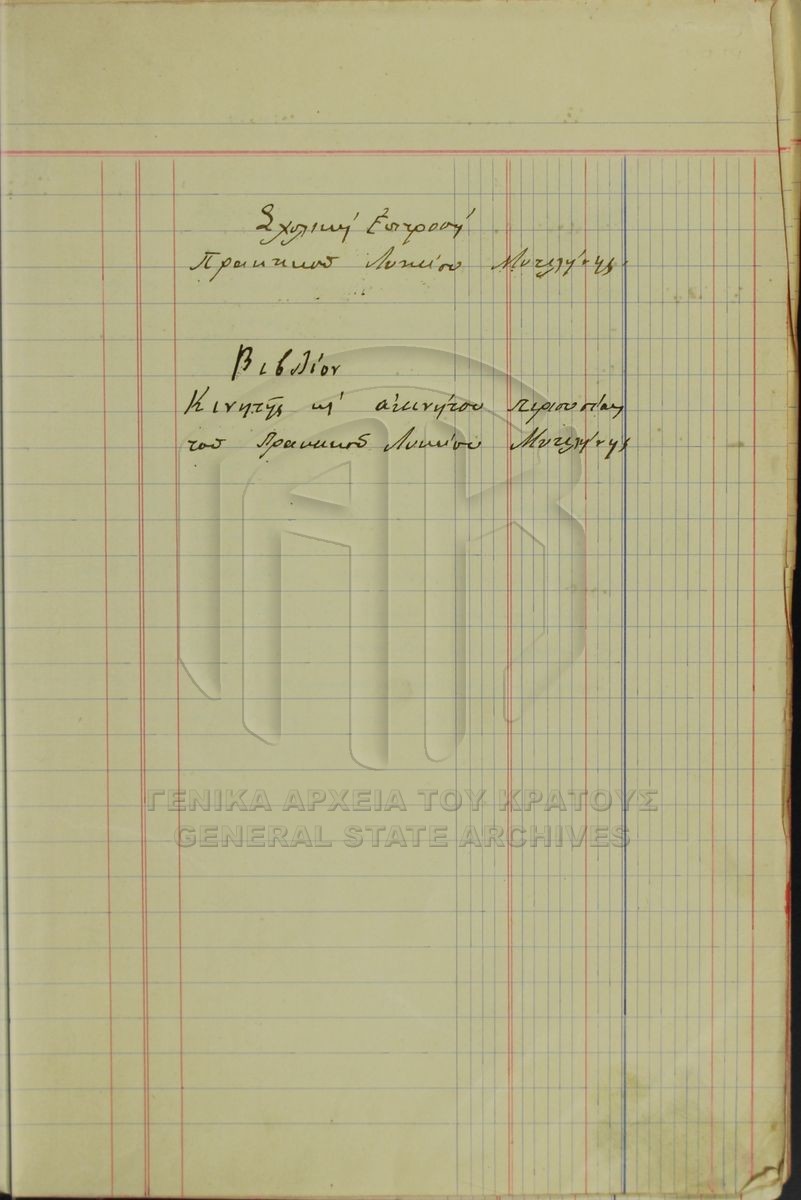 Σχολική Ἐπιτροπή
Πρακτικοῦ Λυκείου Μυτιλήνης
Βιβλίον
Κινητῆς κ' ἀκινήτου περιουσίας
τοῦ Πρακτικοῦ Λυκείου Μυτιλήνης
ΓΕΝΙΚΑ ΑΡΧΕΙΑ ΤΟΥ ΚΡΑΤΟΥΣ
GENERAL STATE ARCHIVES